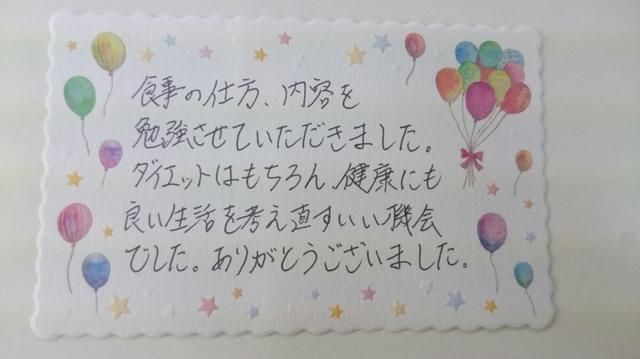 食事の仕方、内容を
勉強させていただきました。
ダイエットはもちろん、健康にも
良い生活を考え直すいい機会
でした。ありがとうございました。